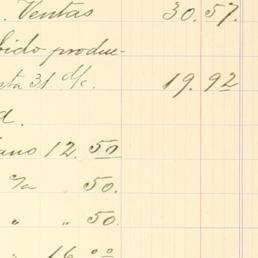 . Ventas 30.57.
bido produc-
sta 31 19.92
d.
ano 12.50
% 50.
" " 50.
" 16.00